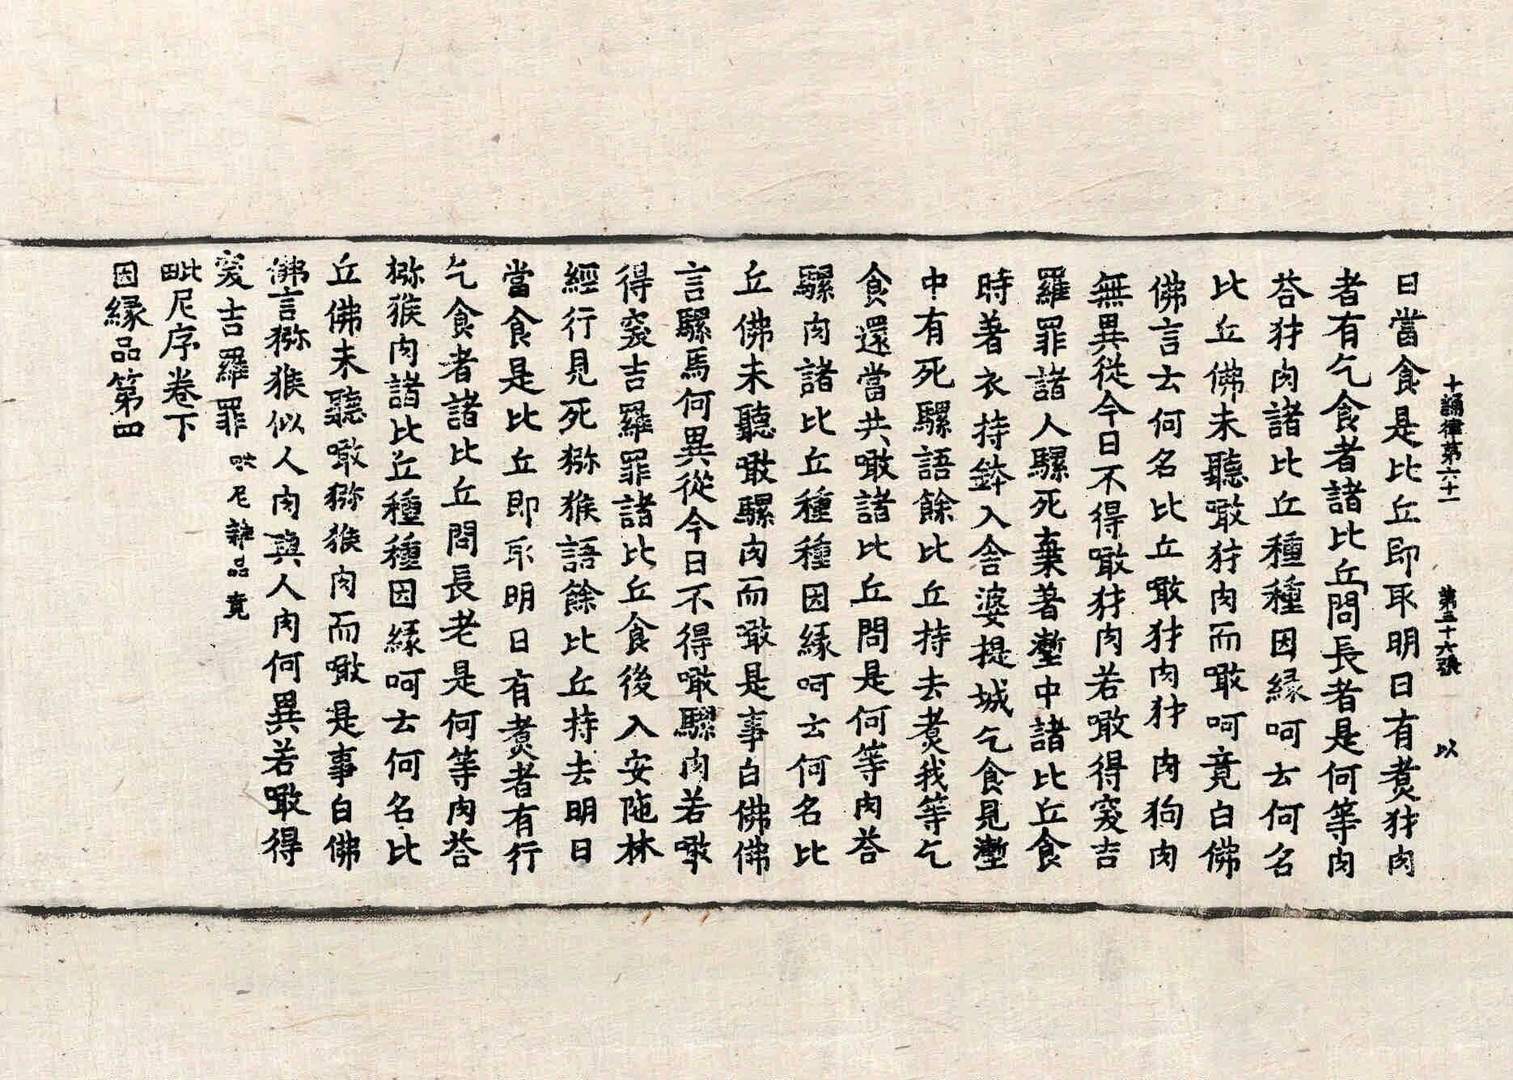 十誦律第六十一 第五十六張 以
日當食是比丘即取明日有煮犲肉
者有乞食者諸比丘問長者是何等肉
荅犲肉諸比丘種種因縁呵云何名
比丘佛未聽噉犲肉而噉呵竟白佛
佛言云何名比丘噉犲肉犲肉狗肉
無異從今日不得噉犲肉若噉得突吉
羅罪諸人騾死棄著壍中諸比丘食
時著衣持鉢入舍婆提城乞食見壍
中有死騾語餘比丘持去煮我等乞
食還當共噉諸比丘問是何等肉荅
騾肉諸比丘種種因縁呵云何名比
丘佛未聽噉騾肉而噉是事白佛佛
言騾馬何異從今日不得噉騾肉若噉
得突吉羅罪諸比丘食後入安陁林
經行見死猕猴語餘比丘持去明日
當食是比丘即取明日有煮者有行
乞食者諸比丘問長老是何等肉荅
猕猴肉諸比丘種種因縁呵云何名比
丘佛未聽噉猕猴肉而噉是事白佛
佛言猕猴似人肉與人肉何異若噉得
突吉羅罪 毗尼雜品竟
毗尼序卷下
因縁品第四